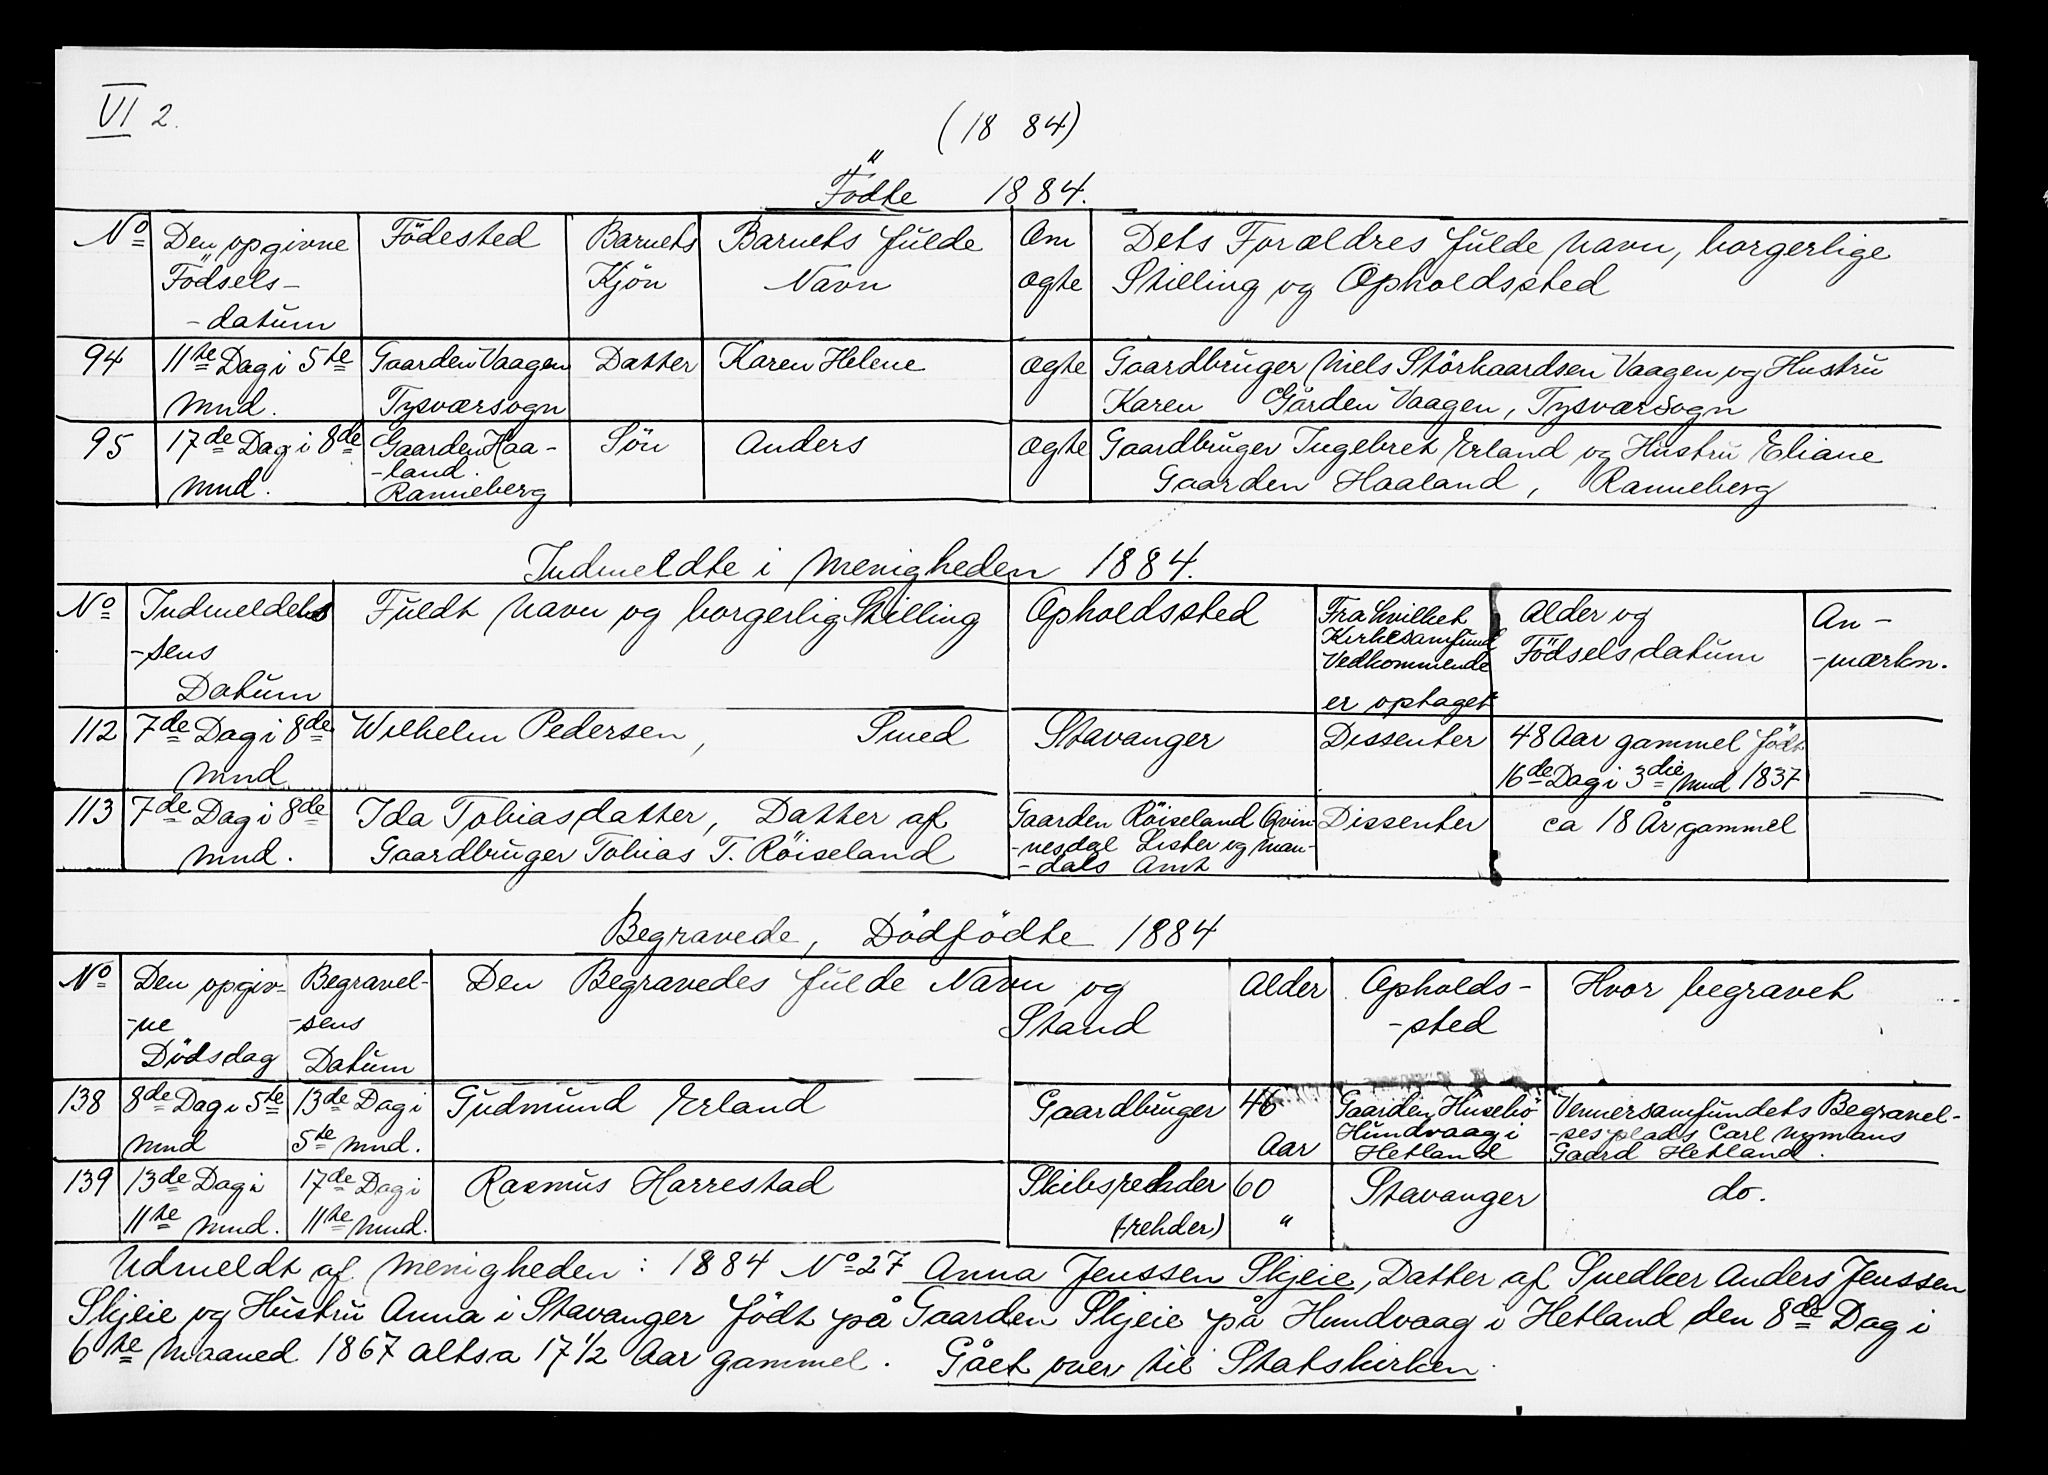 VI 2.
(18 84)
Födte 1884.
No Den opgivne Födested Barnets Barnets fulde Om Dets Forældres fulde Navn, borgerlige
Födsels- Kjön Navn ægte Stilling og Opholdssted
-datum
94 11te Dag i 5te Gaarden Vaagen Datter Karen Helene ægte Gaardbruger Niels Störkaardsen Vaagen og Hustru
Mnd. Tysværsogn Karen Gården Vaagen, Tysværsogn
95 17de Dag i 8de Gaarden Haa- Sön Anders ægte Gaardbruger Ingebret Erland og Hustru Eliane
-land.
Mnd. Ranneberg Gaarden Haaland, Ranneberg
Indmeldte i Menigheden 1884.
No Indmeldel Fuldt Navn og borgerlig Stilling Opholdssted Fra hvilket Alder og An-
-sens Kirkesamfund Födselsdatum -mærkn.
Datum Vedkommende
er optaget
112 7de Dag i 8de Wilhelm Pedersen, Smed Stavanger Dissenter 48 Aar gammel födt
Mnd 16de Dag i 3die Mnd 1837
113 7de Dag i 8de Ida Tobiasdatter, Datter af Gaarden Röiseland Qvin- Dissenter ca 18 År gammel
Mnd. Gaardbruger Tobias T. Röiseland -nesdal Lister og Man-
-dals Amt
Begravede, Dödfödte 1884
No Den opgiv- Begravel- Den Begravedes fulde Navn og Alder Opholds- Hvor begravet
-ne -sens Stand -sted
Dödsdag Datum
138 8de Dag i 5te 13de Dag i Gudmund Erland Gaardbruger 46 Gaarden Husebö Vennersamfundets Begravel-
Mnd 5te Mnd. Aar Hundvaag i -sesplads Carl Nymans
Hetland Gaard Hetland.
139 13de Dag i 17de Dag i Rasmus Harrestad Skibsrehder 60 Stavanger do.
11te Mnd. 11te Mnd. (rehder) "
Udmeldt af Menigheden: 1884 No 27 Anna Jenssen Skjeie, Datter af Snedker Anders Jenssen
Skjeie og Hustru Anna i Stavanger födt på Gaarden Skjeie på Hundvaag i Hetland den 8de Dag i
6te Maaned 1867 altsa 17 1/2 Aar gammel. Gået over til Statskirken.